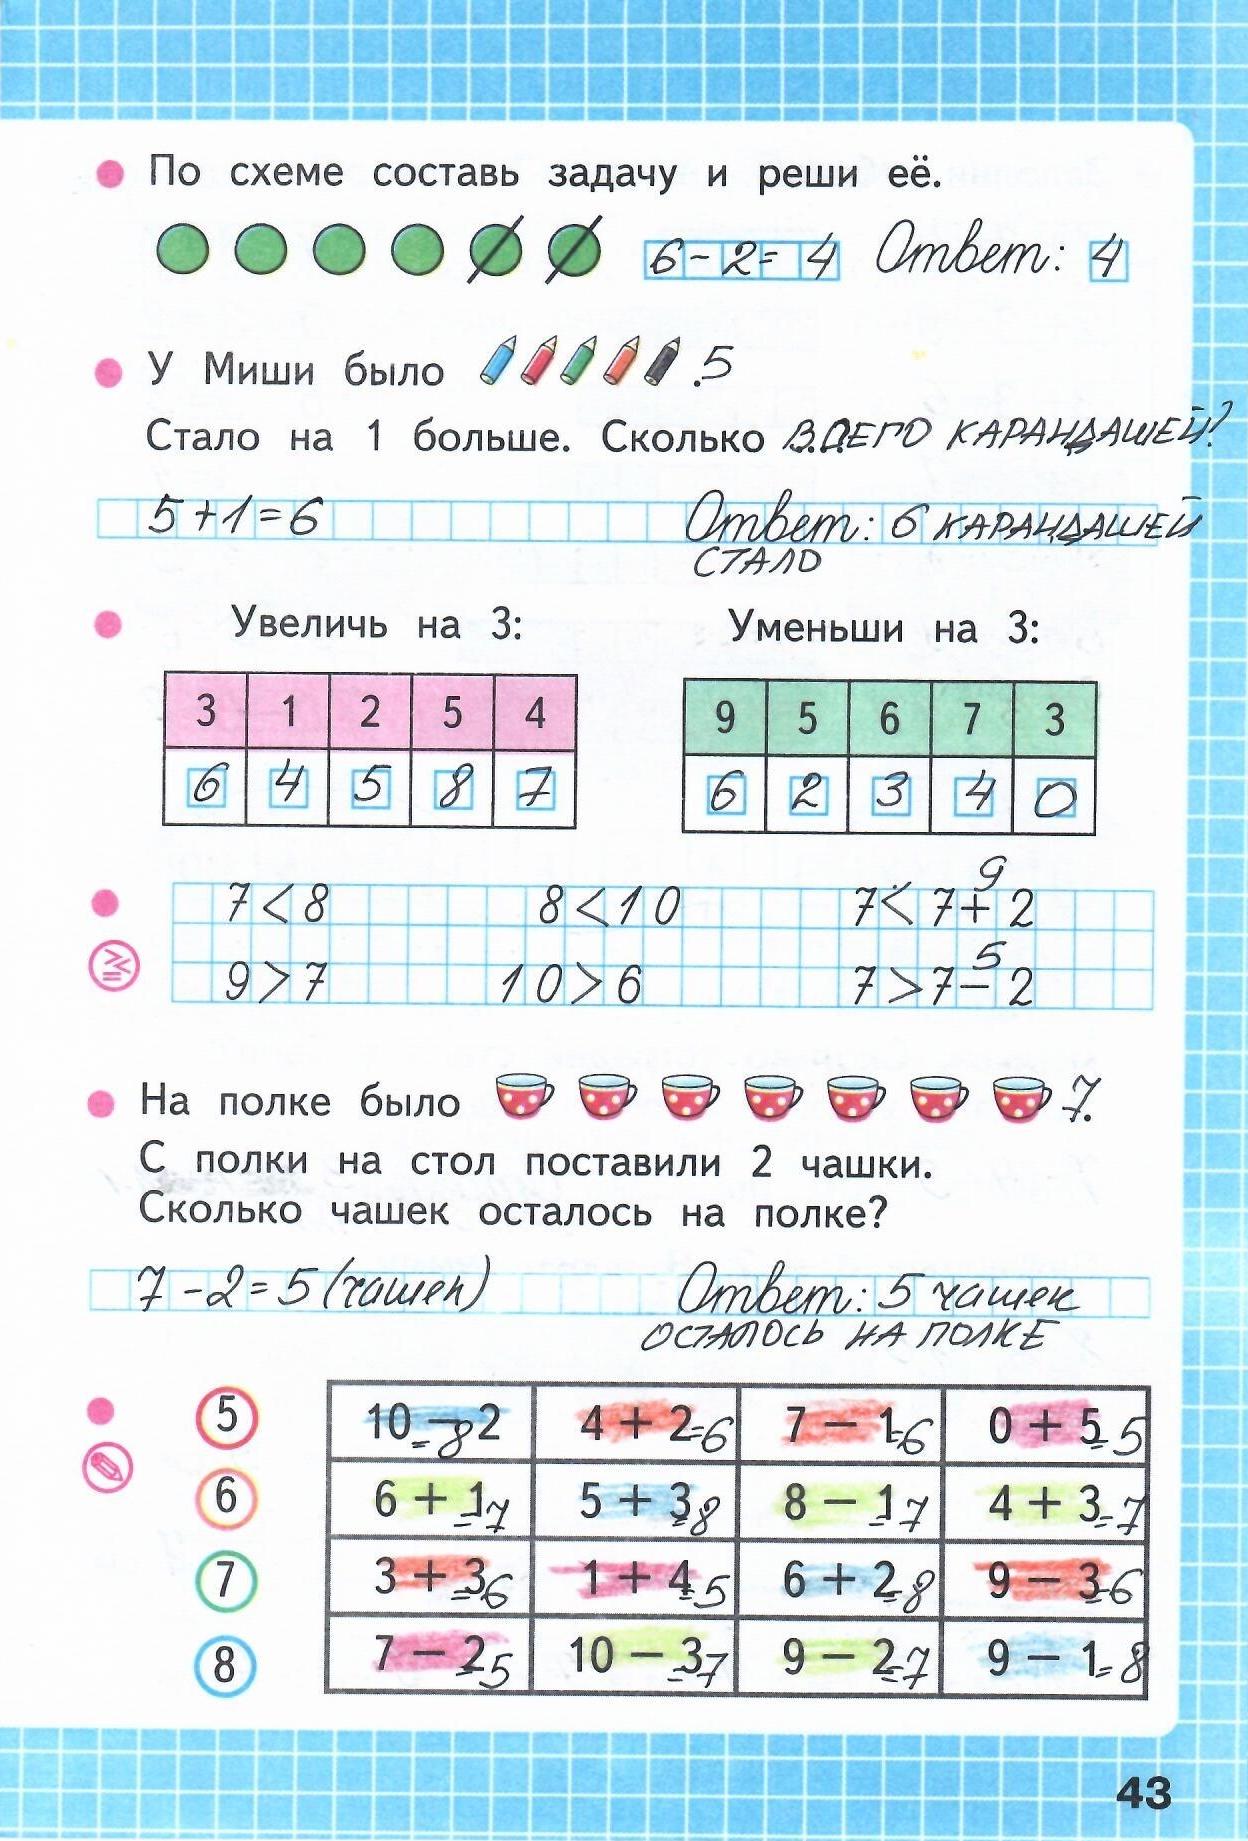 По схеме составь задачу и реши её.
6 - 2 = 4 Ответ: 4
У Миши было . 5
Стало на 1 больше. Сколько ВСЕГО КАРАНДАШЕЙ?
5 + 1 = 6 Ответ: 6 КАРАНДАШЕЙ
СТАЛО
Увеличь на 3: Уменьши на 3:
3 1 2 5 4 9 5 6 7 3
6 4 5 8 7 6 2 3 4 0
9
7 < 8 8 < 10 7 < 7 + 2
5
9 > 7 10 > 6 7 > 7 - 2
На полке было 7.
С полки на стол поставили 2 чашки.
Сколько чашек осталось на полке?
7 - 2 = 5 (чашек) Ответ: 5 чашек
ОСТАЛОСЬ НА ПОЛКЕ
5 10 - 2 = 8 4 + 2 = 6 7 - 1 = 6 0 + 5 = 5
6 6 + 1 = 7 5 + 3 = 8 8 - 1 = 7 4 + 3 = 7
7 3 + 3 = 6 1 + 4 = 5 6 + 2 = 8 9 - 3 = 6
8 7 - 2 = 5 10 - 3 = 7 9 - 2 = 7 9 - 1 = 8
43